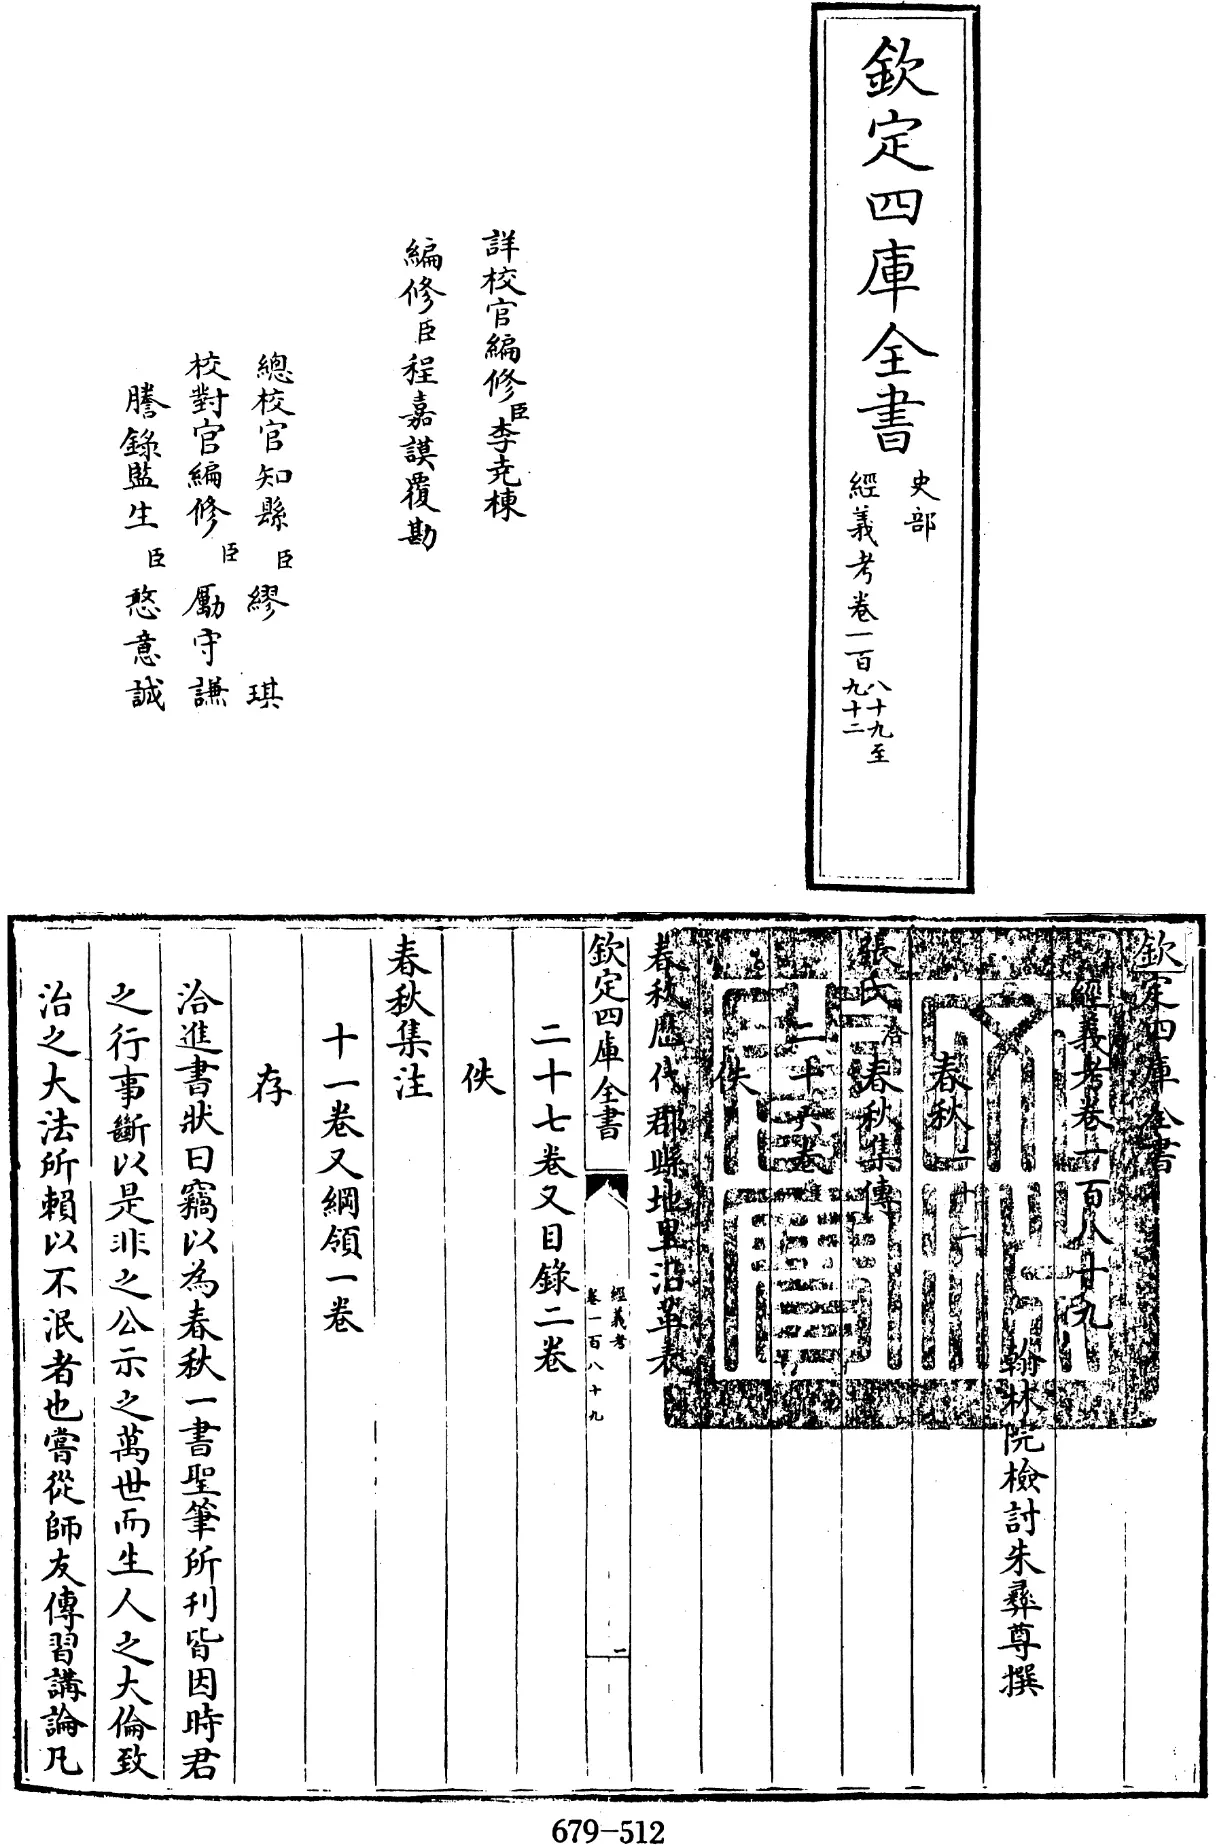 欽定四庫全書
史部
經義考卷一百
八十九至
九十二
詳校官編修臣李堯棟
編修臣程嘉謨覆勘
總校官知縣臣繆琪
校對官編修臣勵守謙
謄錄監生臣憨意誠
欽定四庫全書
經義考卷一百八十九
翰林院檢討朱彝尊撰
春秋二十二
張氏洽春秋集傳
二十六卷
佚
春秋歴代郡縣地里沿革表
欽定四庫全書
經義考
卷一百八十九
一
二十七卷又目錄二卷
佚
春秋集注
十一卷又綱領一卷
存
洽進書狀曰竊以為春秋一書聖筆所刊皆因時君
之行事斷以是非之公示之萬世而生人之大倫致
治之大法所賴以不泯者也嘗從師友傳習講論凡
679-512